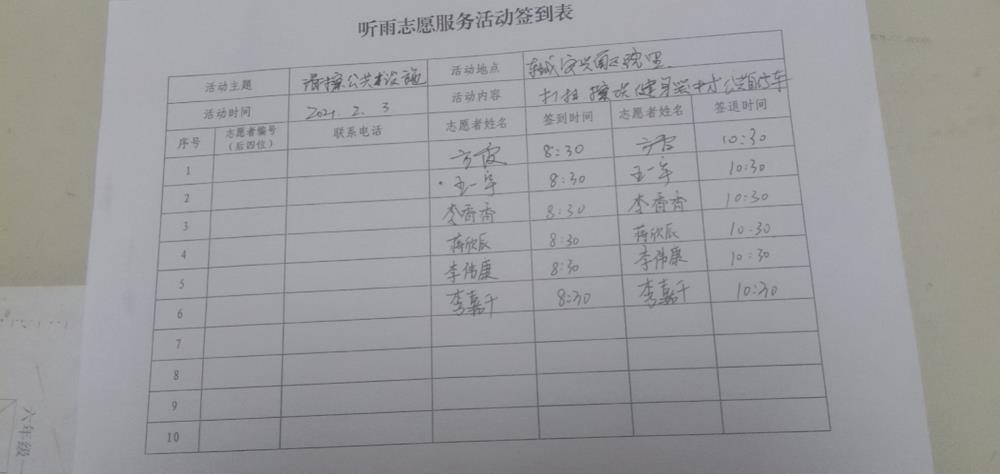 听雨志愿服务活动签到表
活动主题 清擦公共设施 活动地点
活动时间 2021. 2. 3 活动内容 打扫 擦拭健身器材 公共自行车
序号 志愿者编号（后四位） 联系电话 志愿者姓名 签到时间 志愿者姓名 签退时间
1 8:30 10:30
2 王一 8:30 王一 10:30
3 李香香 8:30 李香香 10:30
4 蒋欣辰 8:30 蒋欣辰 10:30
5 李伟康 8:30 李伟康 10:30
6 李嘉千 8:30 李嘉千 10:30
7
8
9
10
六年级